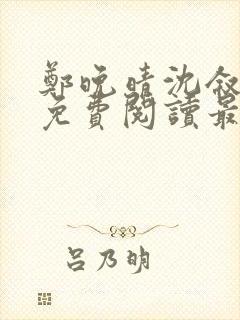 鄭晚晴沈叙
免費閱讀最
呂乃明